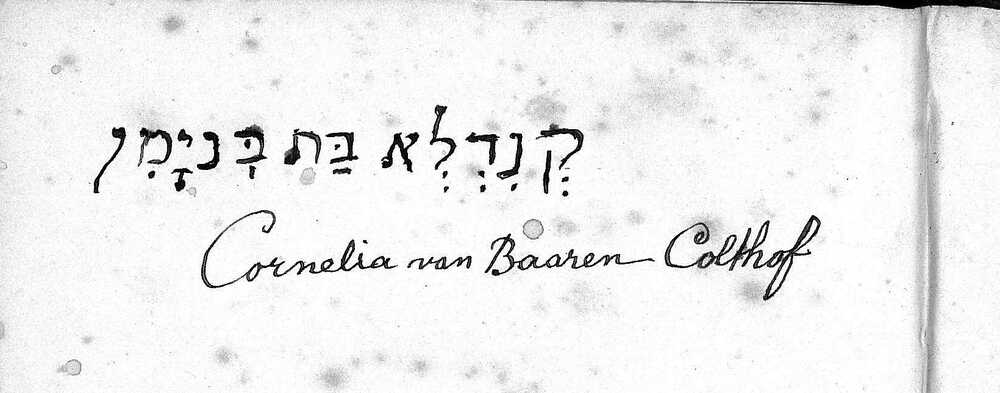 קֶנִדְלְא בַּת בִּנְיָמִן
Cornelia van Baaren Colthof